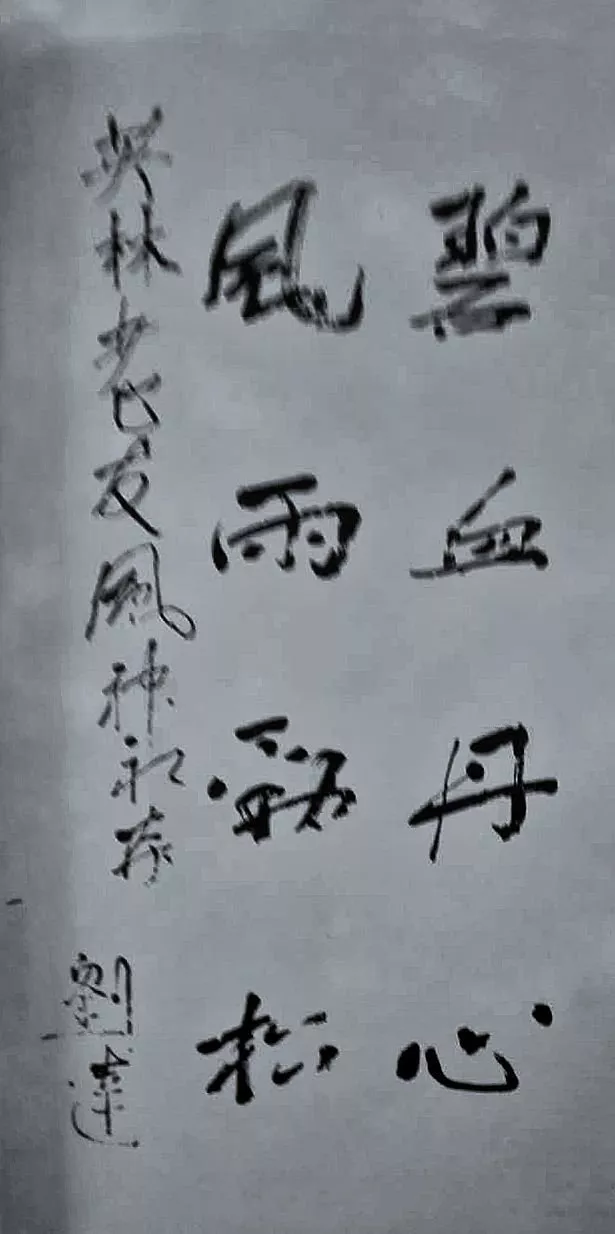 碧血丹心
風雨霜松
英林老友風神永存
劉達